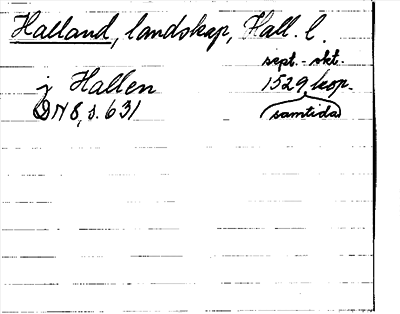 Halland, landskap, Hall. l.
sept. - okt.
j Hallen 1529 kop.
DN 8, s. 631 (samtida)